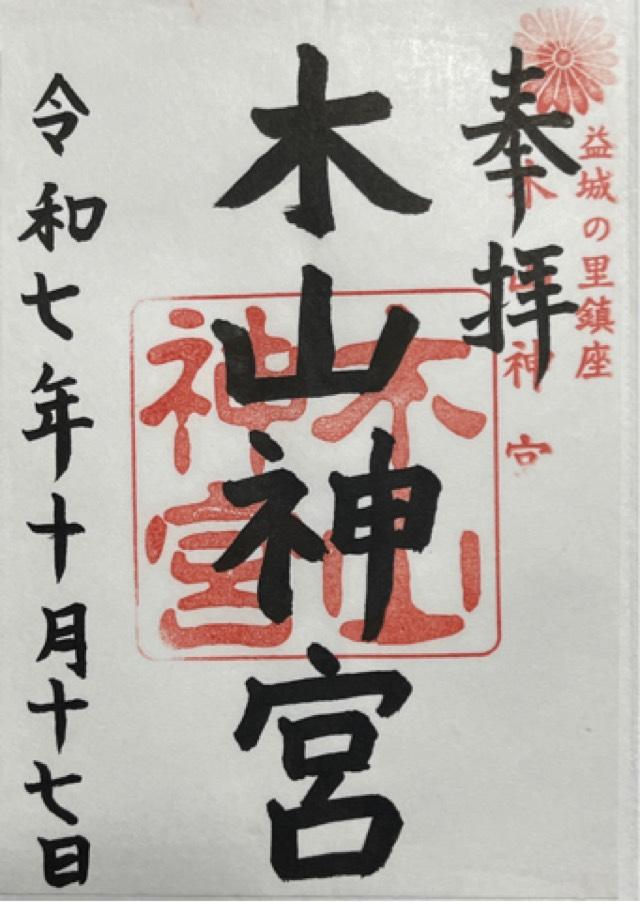 益城の里鎮座
木山神宮
奉拝
木山神宮
木山神宮
令和七年十月十七日